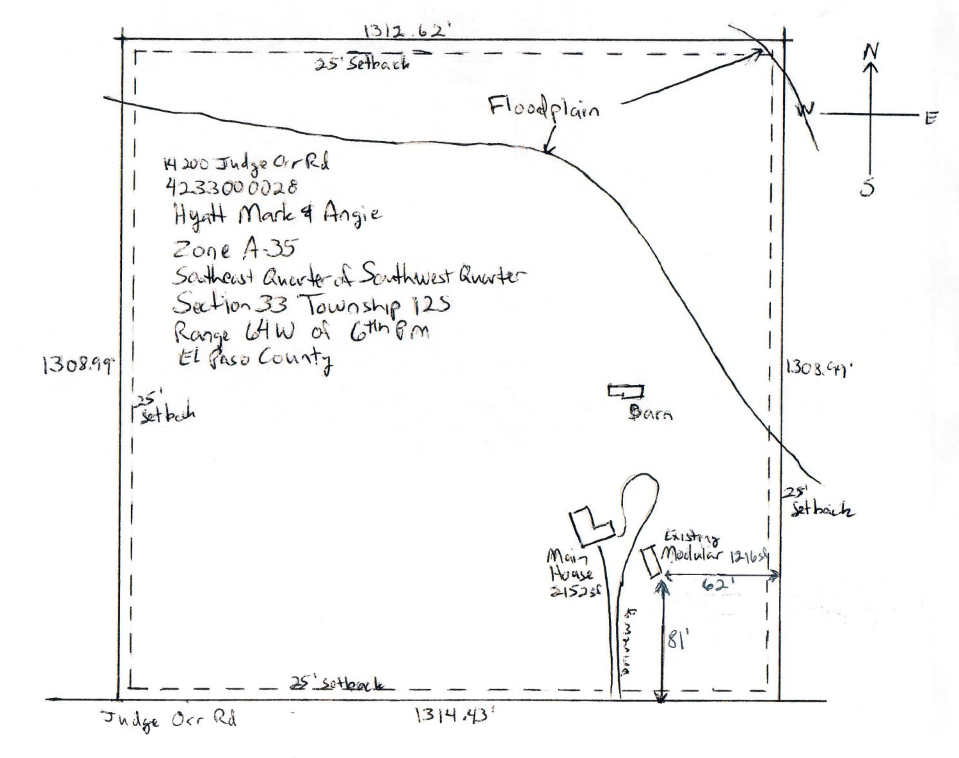 1312.62'
25' Setback
N
W
E
S
Floodplain
14200 Judge Orr Rd
4233000028
Hyatt Mark & Angie
Zone A-35
Southeast Quarter of Southwest Quarter
Section 33 Township 12S
Range 64W of 6th PM
El Paso County
1308.99'
1308.99'
25'
Setback
Barn
25'
Setback
Existing
Modular 1216sf
62'
Main
House
2152sf
81'
25' Setback
Judge Orr Rd
1314.43'